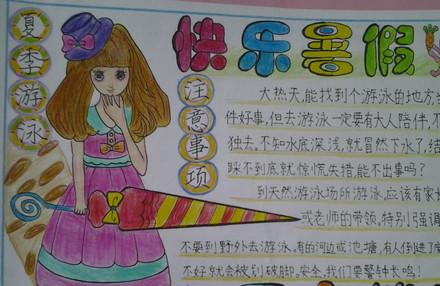 夏季游泳
快乐暑假
注意事项
大热天,能找到个游泳的地方,
件好事,但去游泳一定要有大人陪伴,不
独去,不知水底深浅,就冒然下水了,结
踩不到底就惊慌失措,能不出事吗?
到天然游泳场所游泳,应该有家
或老师的带领,特别强调
不要到野外去游泳,有的河边或池塘,有人倒进了
不好就会被划破脚,安全,我们要警钟长鸣!